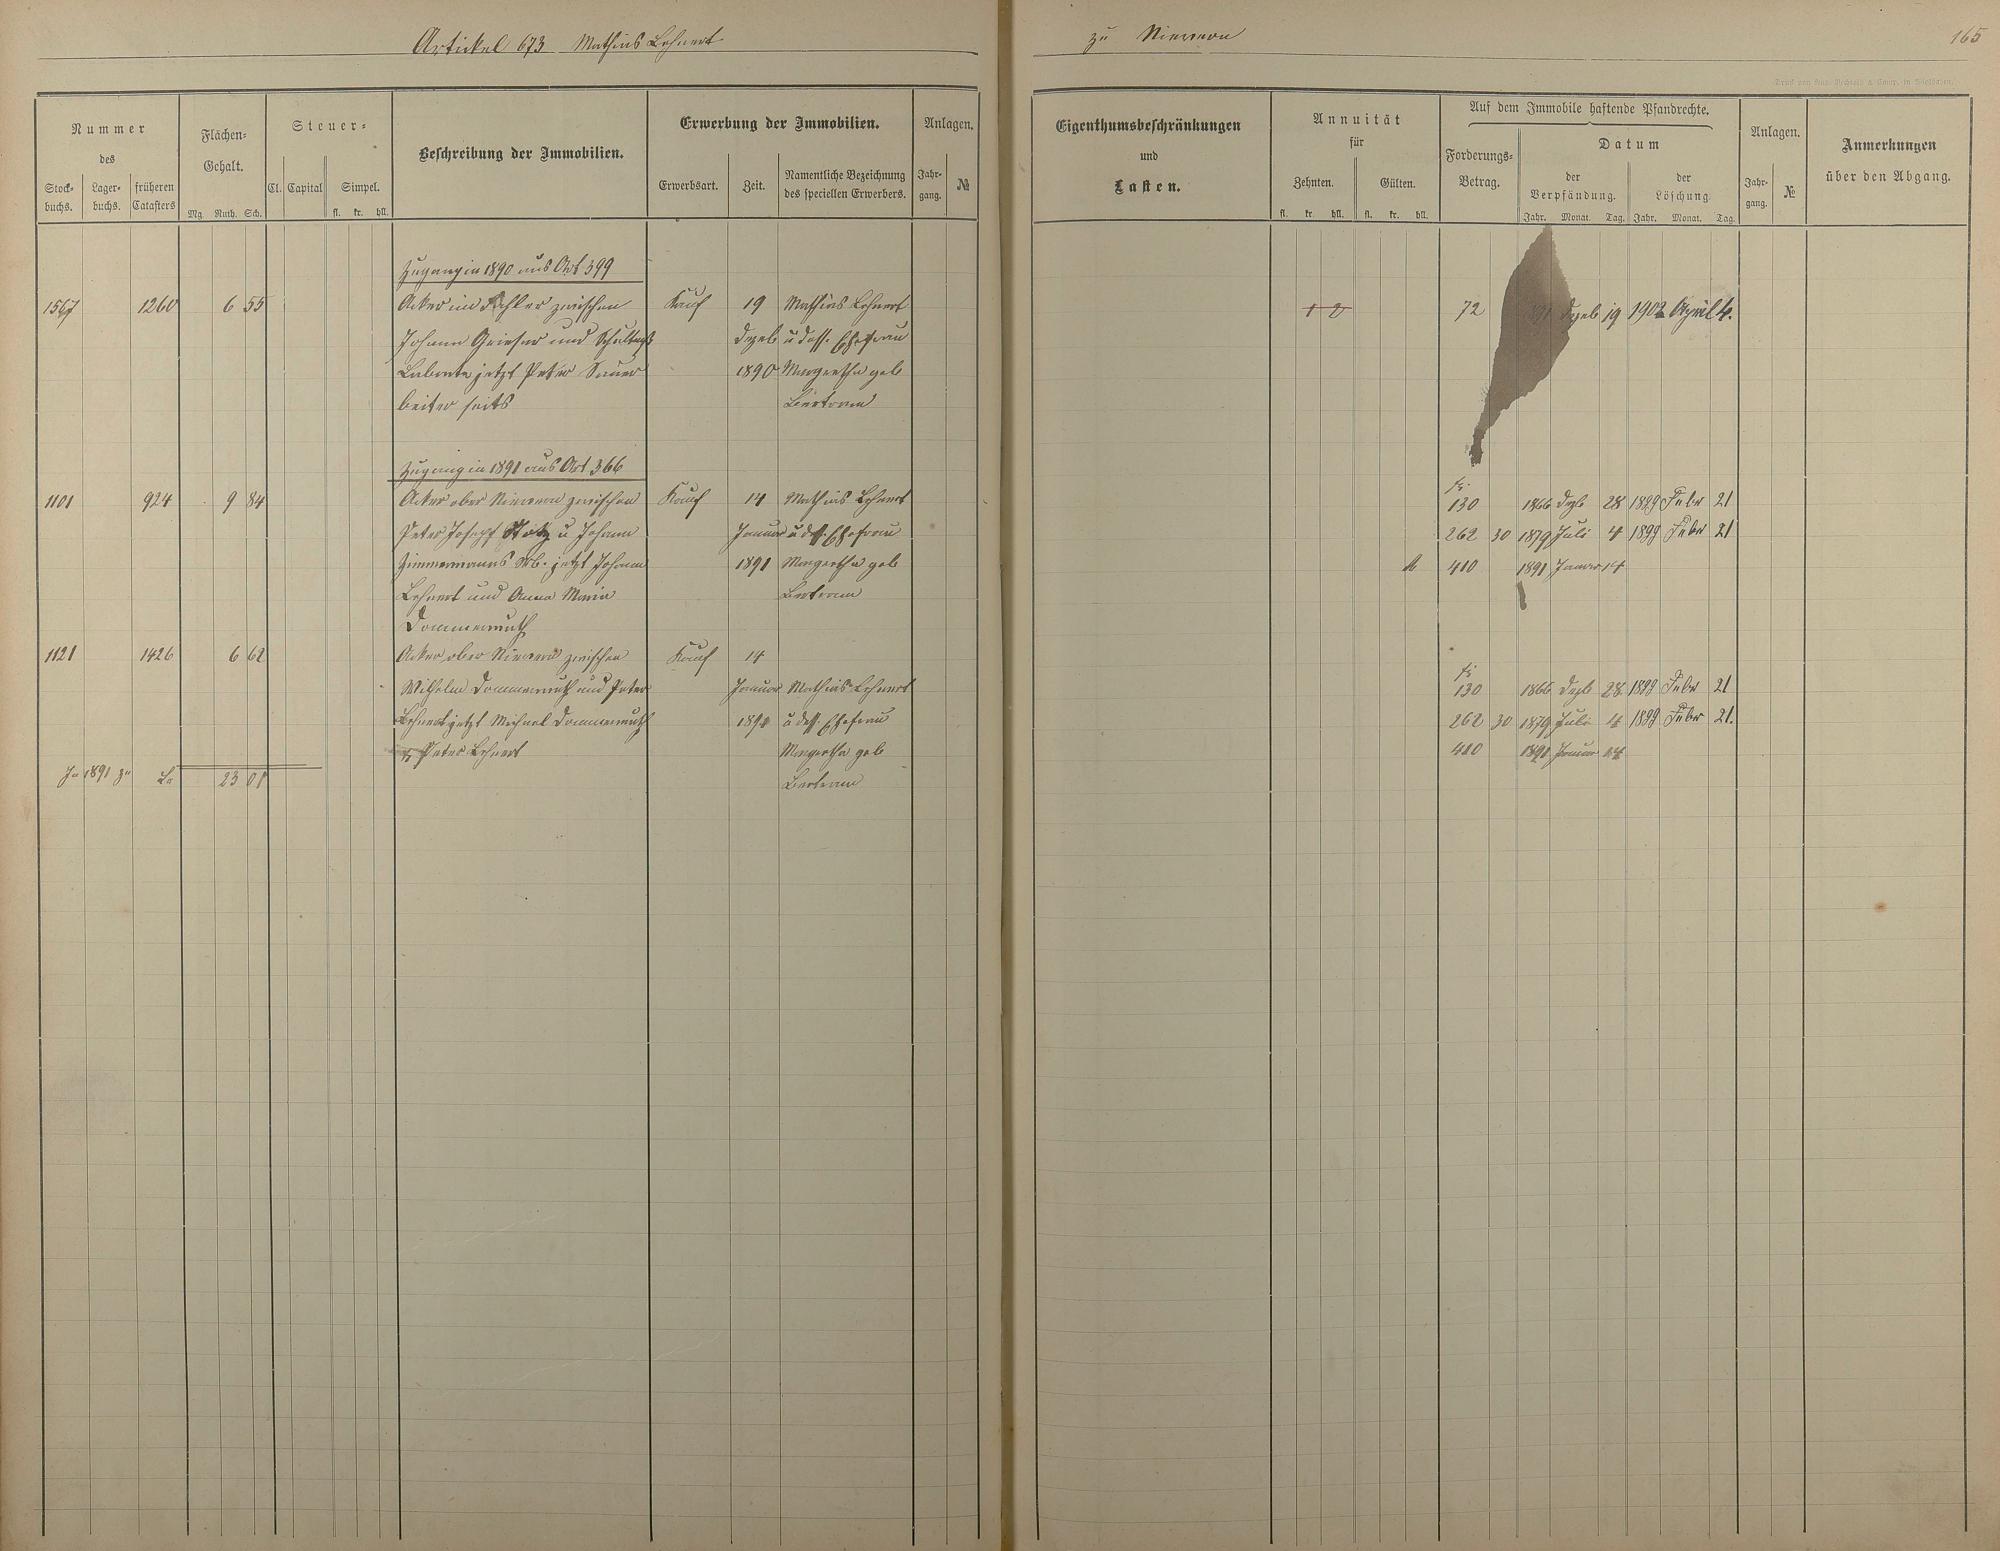 Artikel 673 Mathias Lehnert
zu Nievern
165
Nummer
des
Stock-
buchs.
Lager-
buchs.
früheren
Catasters
Flächen-
Gehalt.
Mg. Ruth. Sch.
Steuer-
Cl. Capital Simpel.
fl. kr. hll.
Beschreibung der Immobilien.
Erwerbung der Immobilien.
Erwerbsart. Zeit.
Namentliche Bezeichnung
des speciellen Erwerbers.
Anlagen.
Jahr-
gang.
№
Eigenthumsbeschränkungen
und
Lasten.
Annuität
für
Zehnten. Gülten.
fl. kr. hll. fl. kr. hll.
Auf dem Immobile haftende Pfandrechte.
Forderungs-
Betrag.
Datum
der
Verpfändung.
der
Löschung.
Jahr. Monat. Tag. Jahr. Monat. Tag.
Anlagen.
Jahr-
gang.
№
Anmerkungen
über den Abgang.
Zugang in 1890 aus Art 399
1567 1260 6 55 Acker im zwischen Kauf 19 Mathias Lehnert 72 Dezeb 19 1902 April 4.
Johann Grieser und Dezeb u dess. Ehefrau
jetzt Peter Sauer 1890 Margretha geb
beiter seits Bertram
Zugang in 1891 aus Art 366
1101 924 9 84 Acker ober Nievern zwischen Kauf 14 Mathias Lehnert 130 1866 Dezb 28 1899 Febr 21
Peter Josef u Johann Januar u dess. Ehefrau 262 30 1879 Juli 4 1899 Febr 21
Zimmermanns Wb. jetzt Johann 1891 Margretha geb 410 1891 Januar 14
Lehnert und Anna Maria Bertram
Dommermuth
1121 1426 6 62 Acker ober Nievern zwischen Kauf 14
Wilhelm Dommermuth und Peter Januar Mathias Lehnert 130 1866 Dezb 28 1899 Febr 21
Lehnert jetzt Michael Dommermuth 1891 u dess. Ehefrau 262 30 1879 Juli 4 1899 Febr 21.
Peter Lehnert Margretha geb 410 1891 Januar 14
In 1891 zu 23 01 Bertram